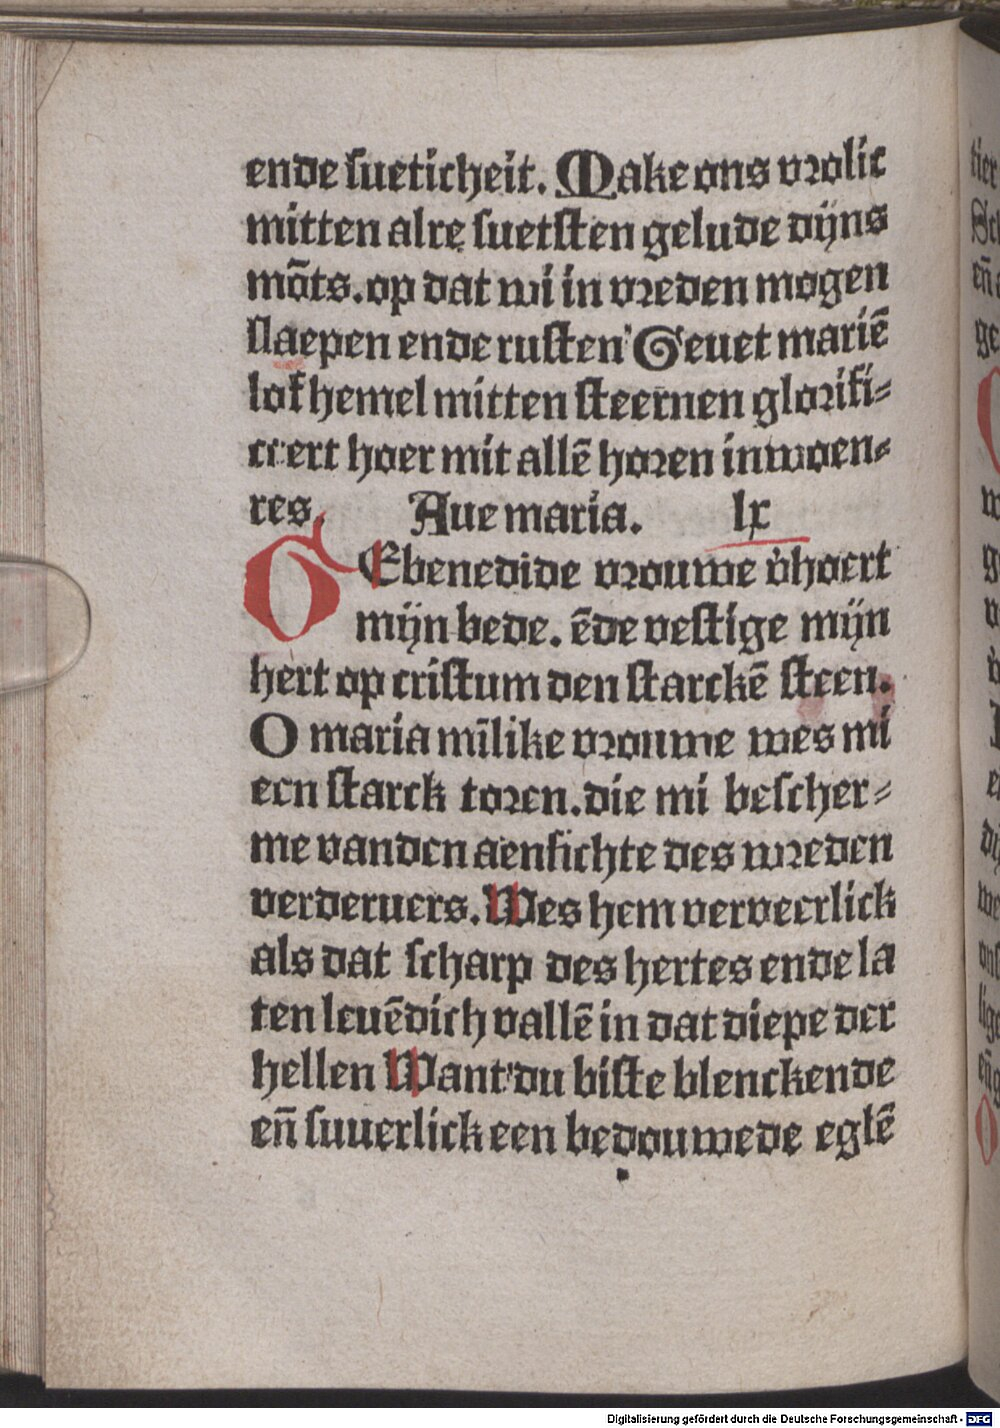 ende sueticheit. Make ons vrolic
mitten alre suetsten gelude dijns
mōts. op dat wi in vreden mogen
slaepen ende rusten Geuet mariē
lof hemel mitten steernen glorifi=
cert hoer mit allē horen inwoen=
res. Aue maria. lx
GEbenedide vrouwe v̓hoert
mijn bede. ēde vestige mijn
hert op cristum den starckē steen.
O maria mīlike vrouwe wes mi
een starck toren. die mi bescher=
me vanden aensichte des wreden
verderuers. Wes hem verveerlick
als dat scharp des hertes ende la
ten leuēdich vallē in dat diepe der
hellen Want du biste blenckende
eñ suuerlick een bedouwede eglē
Digitalisierung gefördert durch die Deutsche Forschungsgemeinschaft - DFG